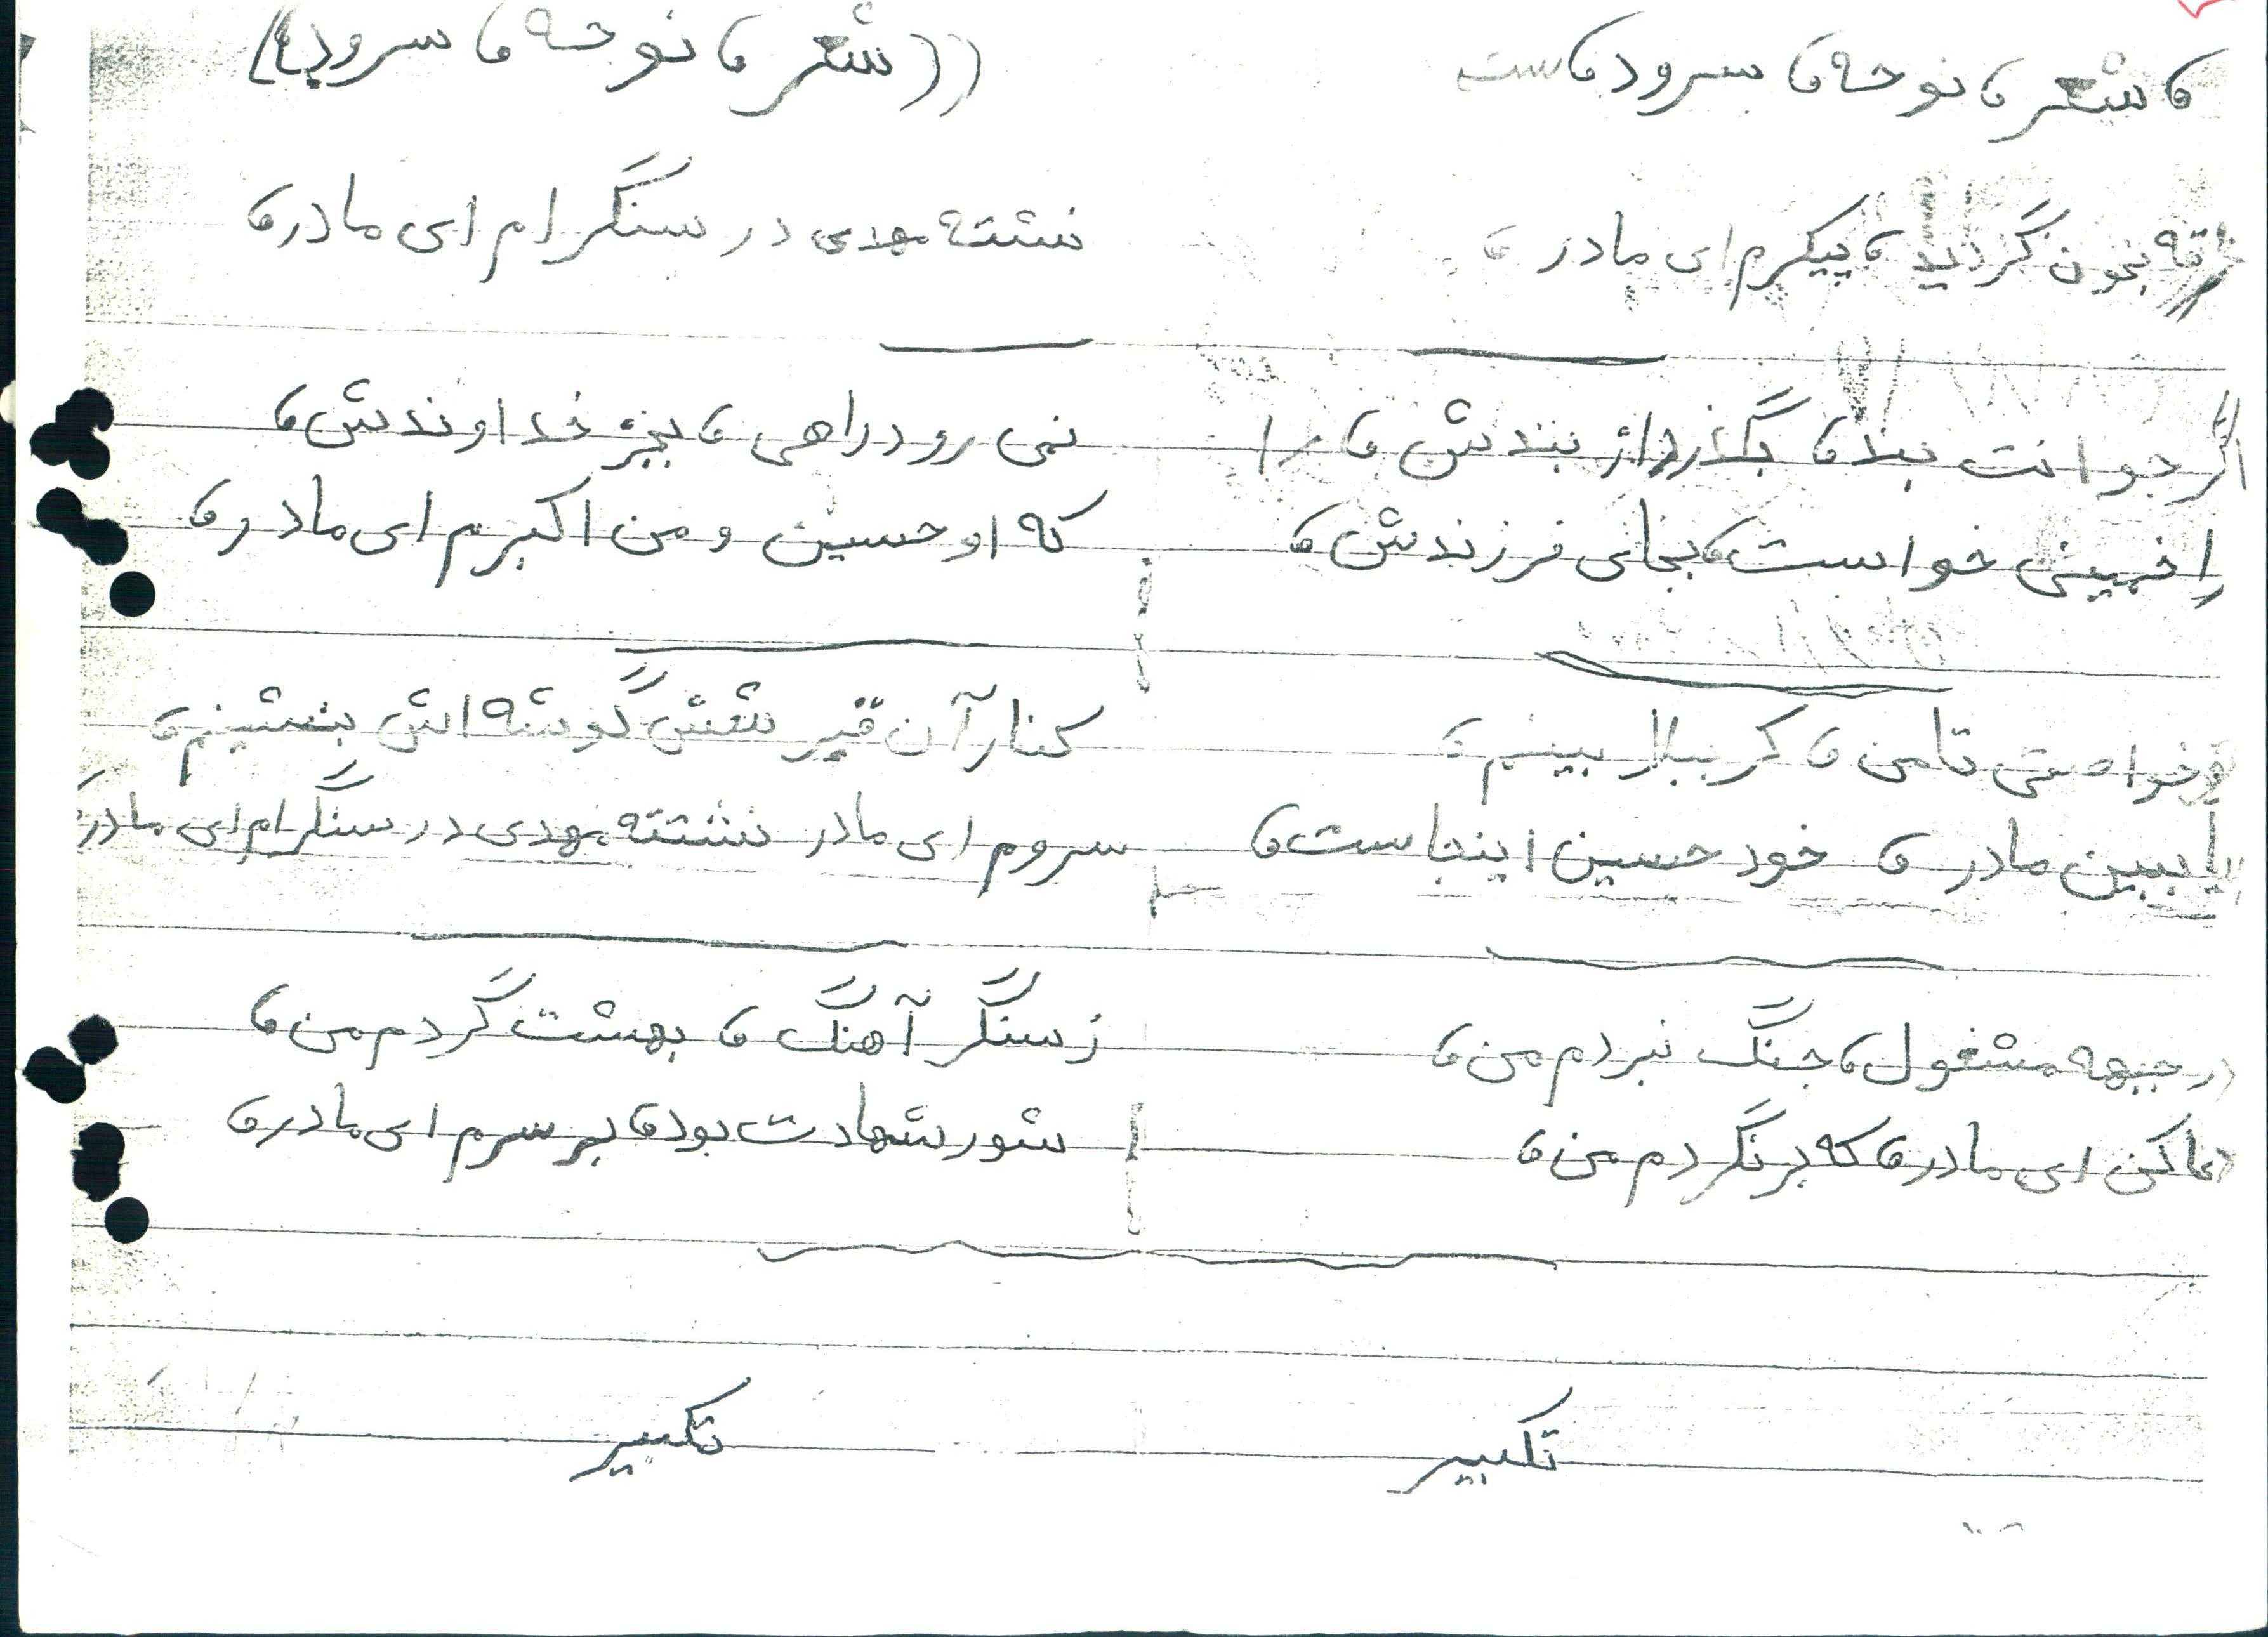 ، شعر ، نوحه ، سرود ، ست ((شعر ، نوحه ، سرود))
غرقه بخون گردید ، پیکرم ای مادر ، نشته مهدی در سنگرام ای مادر ،
اگر جوانت بند ، بگذرد از بندش ، نمی رود راهی ، بجز خداوندش ،
خمینی خواست ، بجای فرزندش ، که او حسین و من اکبرم ای مادر ،
خواستی تا من ، کربلا بینم ، کنار آن قبر شش گوشه اش بنشینم ،
بیا ببین مادر ، خود حسین اینجاست ، سروم ای مادر نشته مهدی در سنگرام ای مادر
در جبهه مشغول ، جنگ نبردم من ، ز سنگر آهنگ ، بهشت گردم من ،
دعا کن ای مادر ، که برنگردم من ، شور شهادت بود ، بر سرم ای مادر ،
تکبیر تکبیر